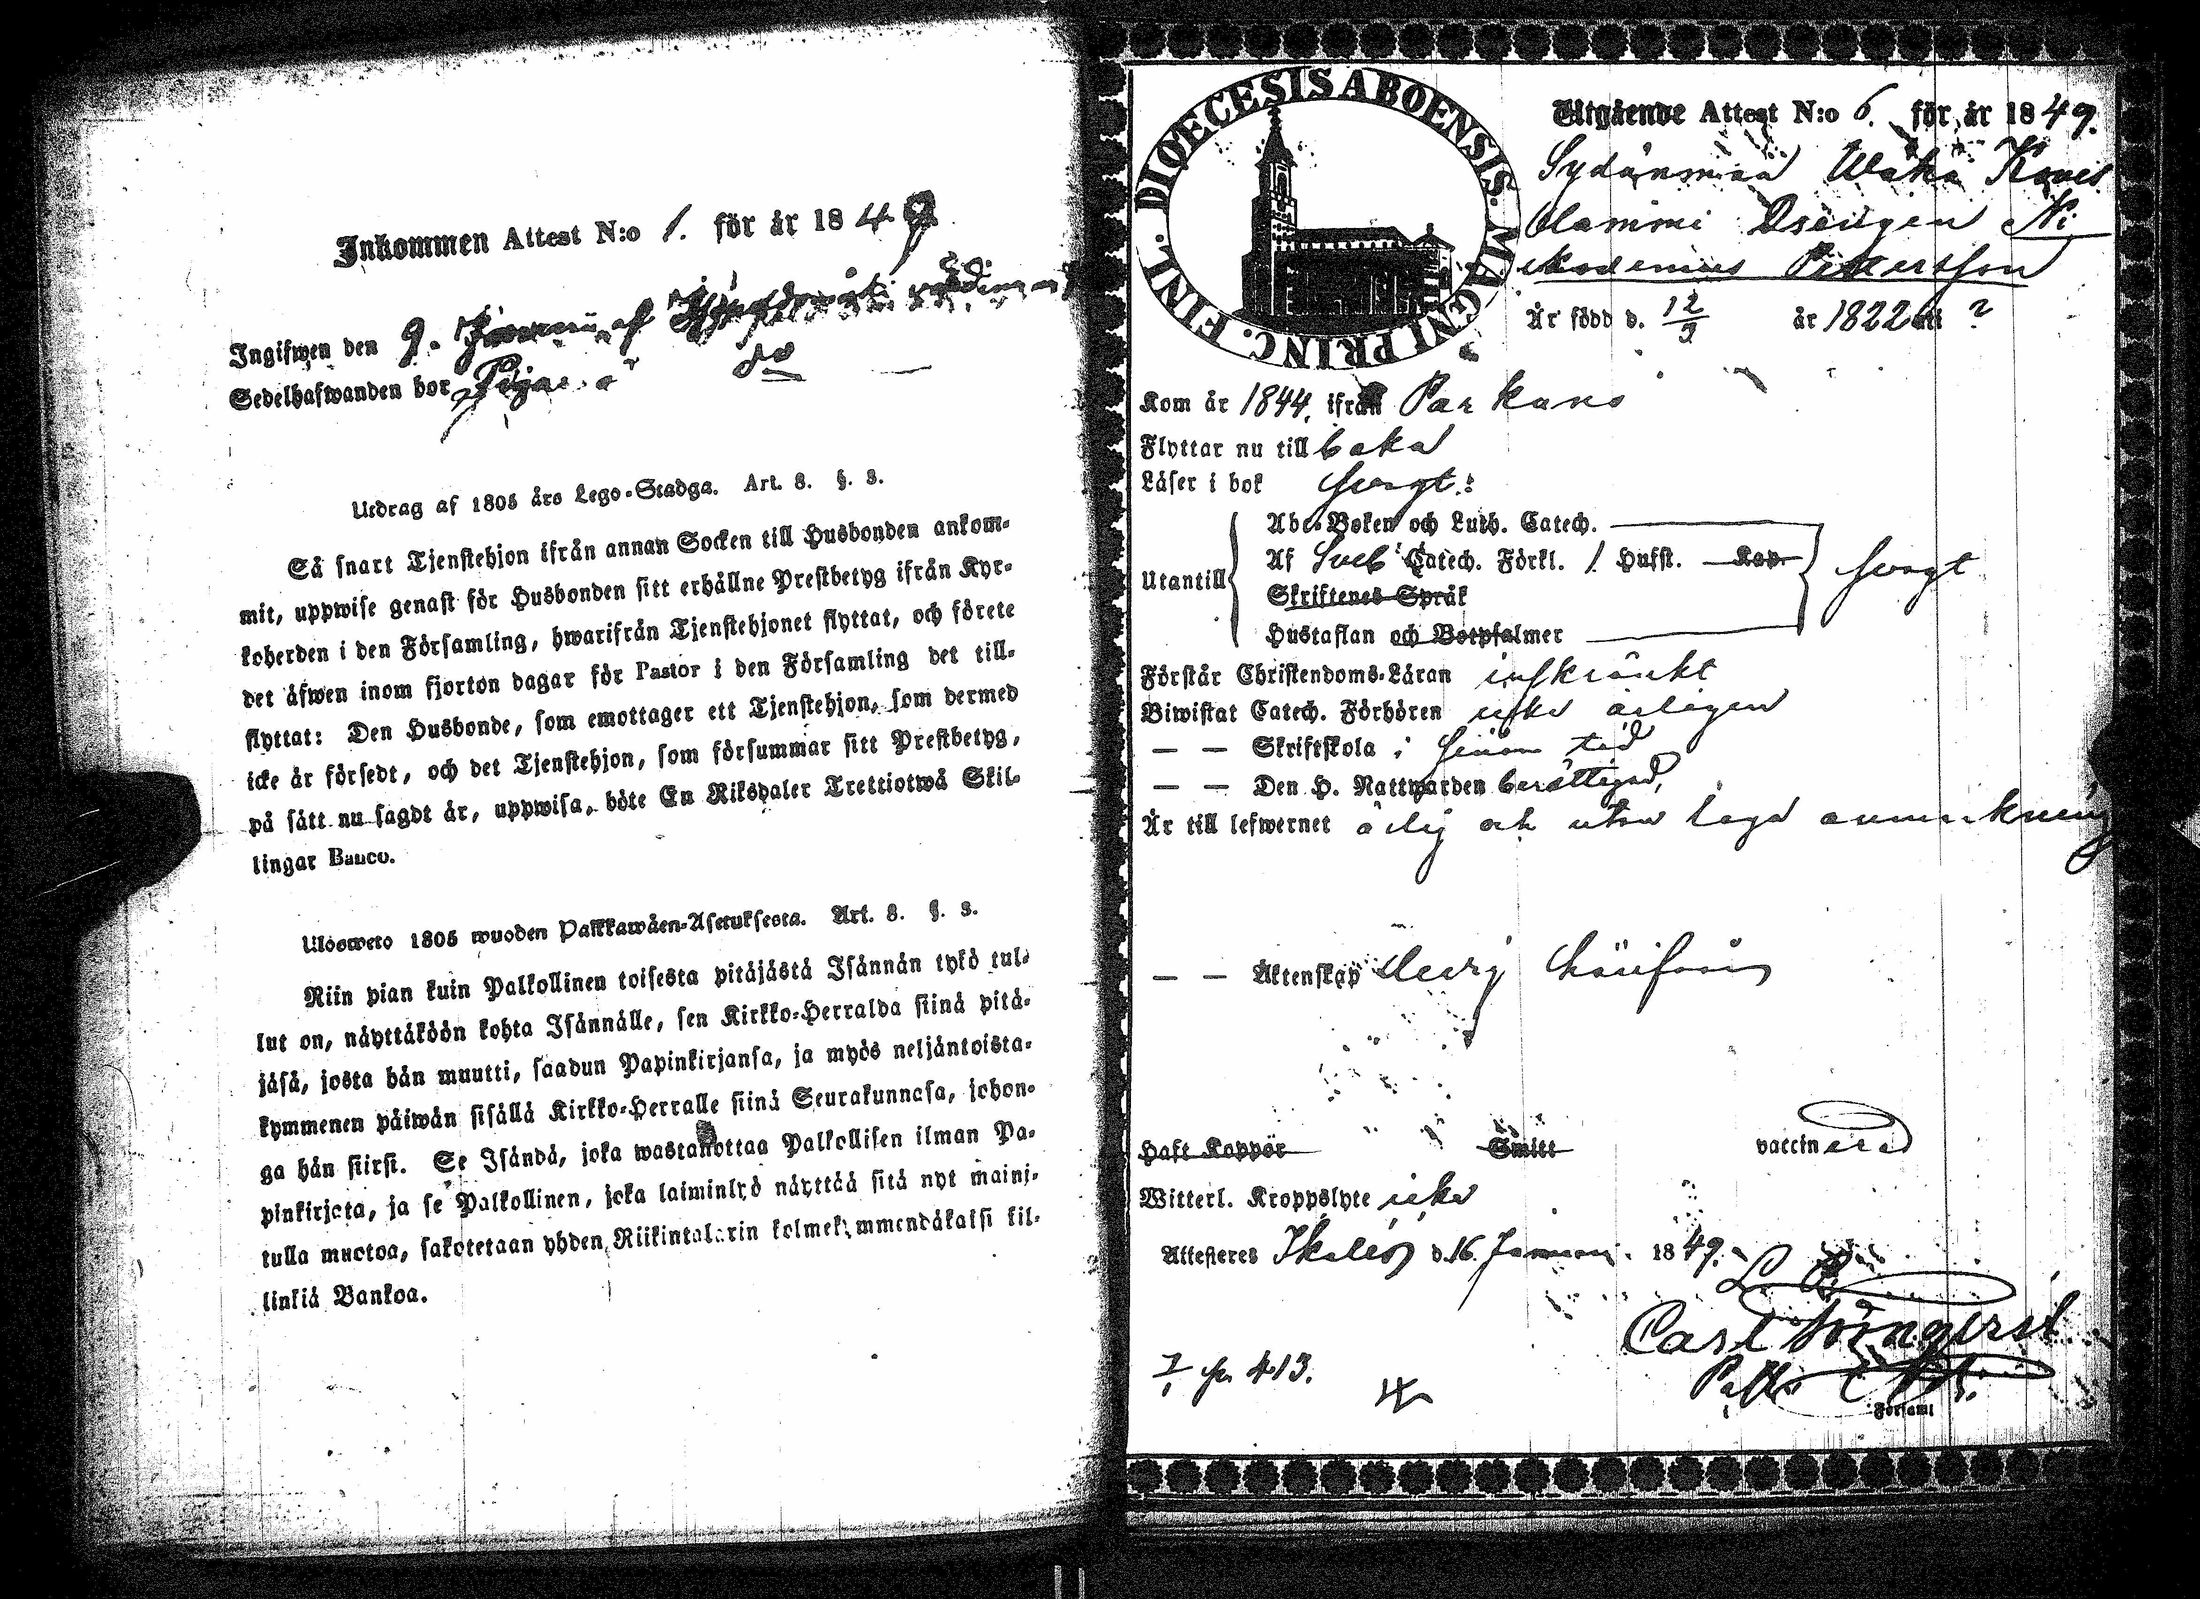 Inkommen Attest N:o 1. för år 184
Ingifwen den 9.
Sedelhafwanden bor
Utdrag af 1805 års Lego-Stadga. Art. 8. §. 3.
Så snart Tjenstehjon ifrån annan Socken till Husbonden ankom-
mit, uppwise genast för Husbonden sitt erhållne Prestbetyg ifrån Kyr-
koherden i den Församling, hwarifrån Tjenstehjonet flyttat, och förete
det äfwen inom fjorton dagar för Pastor i den Församling det till-
flyttat: Den Husbonde, som emottager ett Tjenstehjon, som dermed
icke är försedt, och det Tjenstehjon, som försummar sitt Prestbetyg,
på sätt nu sagdt är, uppwisa, böte En Riksdaler Trettiotwå Skil-
lingar Banco.
Ulosweto 1805 wuoden Palkkawäen-Asetuksesta. Art. 8. §. 3.
Niin pian kuin Palkollinen toisesta pitäjästä Isännän tykö tul-
lut on, näyttäköön kohta Isännälle, sen Kirkko-Herralda siinä pitä-
jäsä, josta hän muutti, saadun Papinkirjansa, ja myös neljäntoista-
kymmenen päiwän sisällä Kirkko-Herralle siinä Seurakunnasa, johon-
ga hän siirsi. Se Isändä, joka wastanottaa Palkollisen ilman Pa-
pinkirjata, ja se Palkollinen, joka laiminlyö näyttää sitä nyt maini-
tulla muotoa, sakotetaan yhden Riikintalarin kolmekymmendäkaksi kil-
linkiä Bankoa.
DIOECESIS ABOENSIS. MAGNI PRINC. FINL.
Utgående Attest N:o 6. för år 1849.
Sydänmaa
Lammi Ni
kodemus Pettersson
Är född d. 12/9 år 1822 uti ?
Kom år 1844. ifrån Parkano
Flyttar nu till baka
Läser i bok svagt.
Utantill
Abc-Boken och Luth. Catech.
Af Sveb Catech. Förkl. 1 Hufst. Kap.
Skriftenes Språk
Hustaflan och Botpsalmer
svagt
Förstår Christendoms-Läran inskränkt
Biwistat Catech. Förhören icke årligen
— — Skriftskola i sinom tid
— — Den H. Nattwarden berättigad,
Är till lefwernet ärlig och utan laga anmärkning
— — Äktenskap ledig
Haft Koppor Smitt vaccinerad
Witterl. Kroppslyte icke
Attesteres Ikalis d. 16. Januari. 1849.
Carl
i Församl
413.